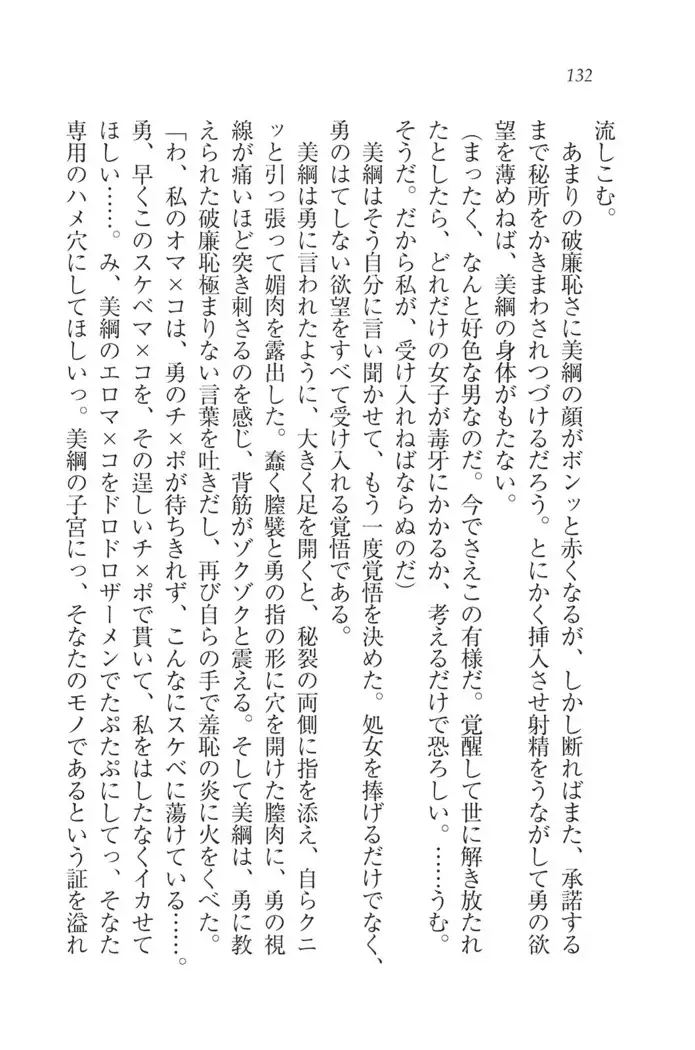 132
流しこむ。
　あまりの破廉恥さに美綱の顔がボンッと赤くなるが、しかし断ればまた、承諾する
まで秘所をかきまわされつづけるだろう。とにかく挿入させ射精をうながして勇の欲
望を薄めねば、美綱の身体がもたない。
（まったく、なんと好色な男なのだ。今でさえこの有様だ。覚醒して世に解き放たれ
たとしたら、どれだけの女子が毒牙にかかるか、考えるだけで恐ろしい。……うむ。
そうだ。だから私が、受け入れねばならぬのだ）
　美綱はそう自分に言い聞かせて、もう一度覚悟を決めた。処女を捧げるだけでなく、
勇のはてしない欲望をすべて受け入れる覚悟である。
　美綱は勇に言われたように、大きく足を開くと、秘裂の両側に指を添え、自らクニ
ッと引っ張って媚肉を露出した。蠢く膣襞と勇の指の形に穴を開けた膣肉に、勇の視
線が痛いほど突き刺さるのを感じ、背筋がゾクゾクと震える。そして美綱は、勇に教
えられた破廉恥極まりない言葉を吐きだし、再び自らの手で羞恥の炎に火をくべた。
「わ、私のオマ×コは、勇のチ×ポが待ちきれず、こんなにスケベに蕩けている……。
勇、早くこのスケベマ×コを、その逞しいチ×ポで貫いて、私をはしたなくイカせて
ほしい……。み、美綱のエロマ×コをドロドロザーメンでたぷたぷにしてっ、そなた
専用のハメ穴にしてほしいっ。美綱の子宮にっ、そなたのモノであるという証を溢れ